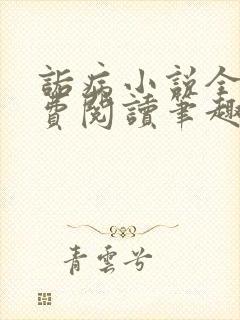 詬病小説全
費閱讀筆趣
青雲兮